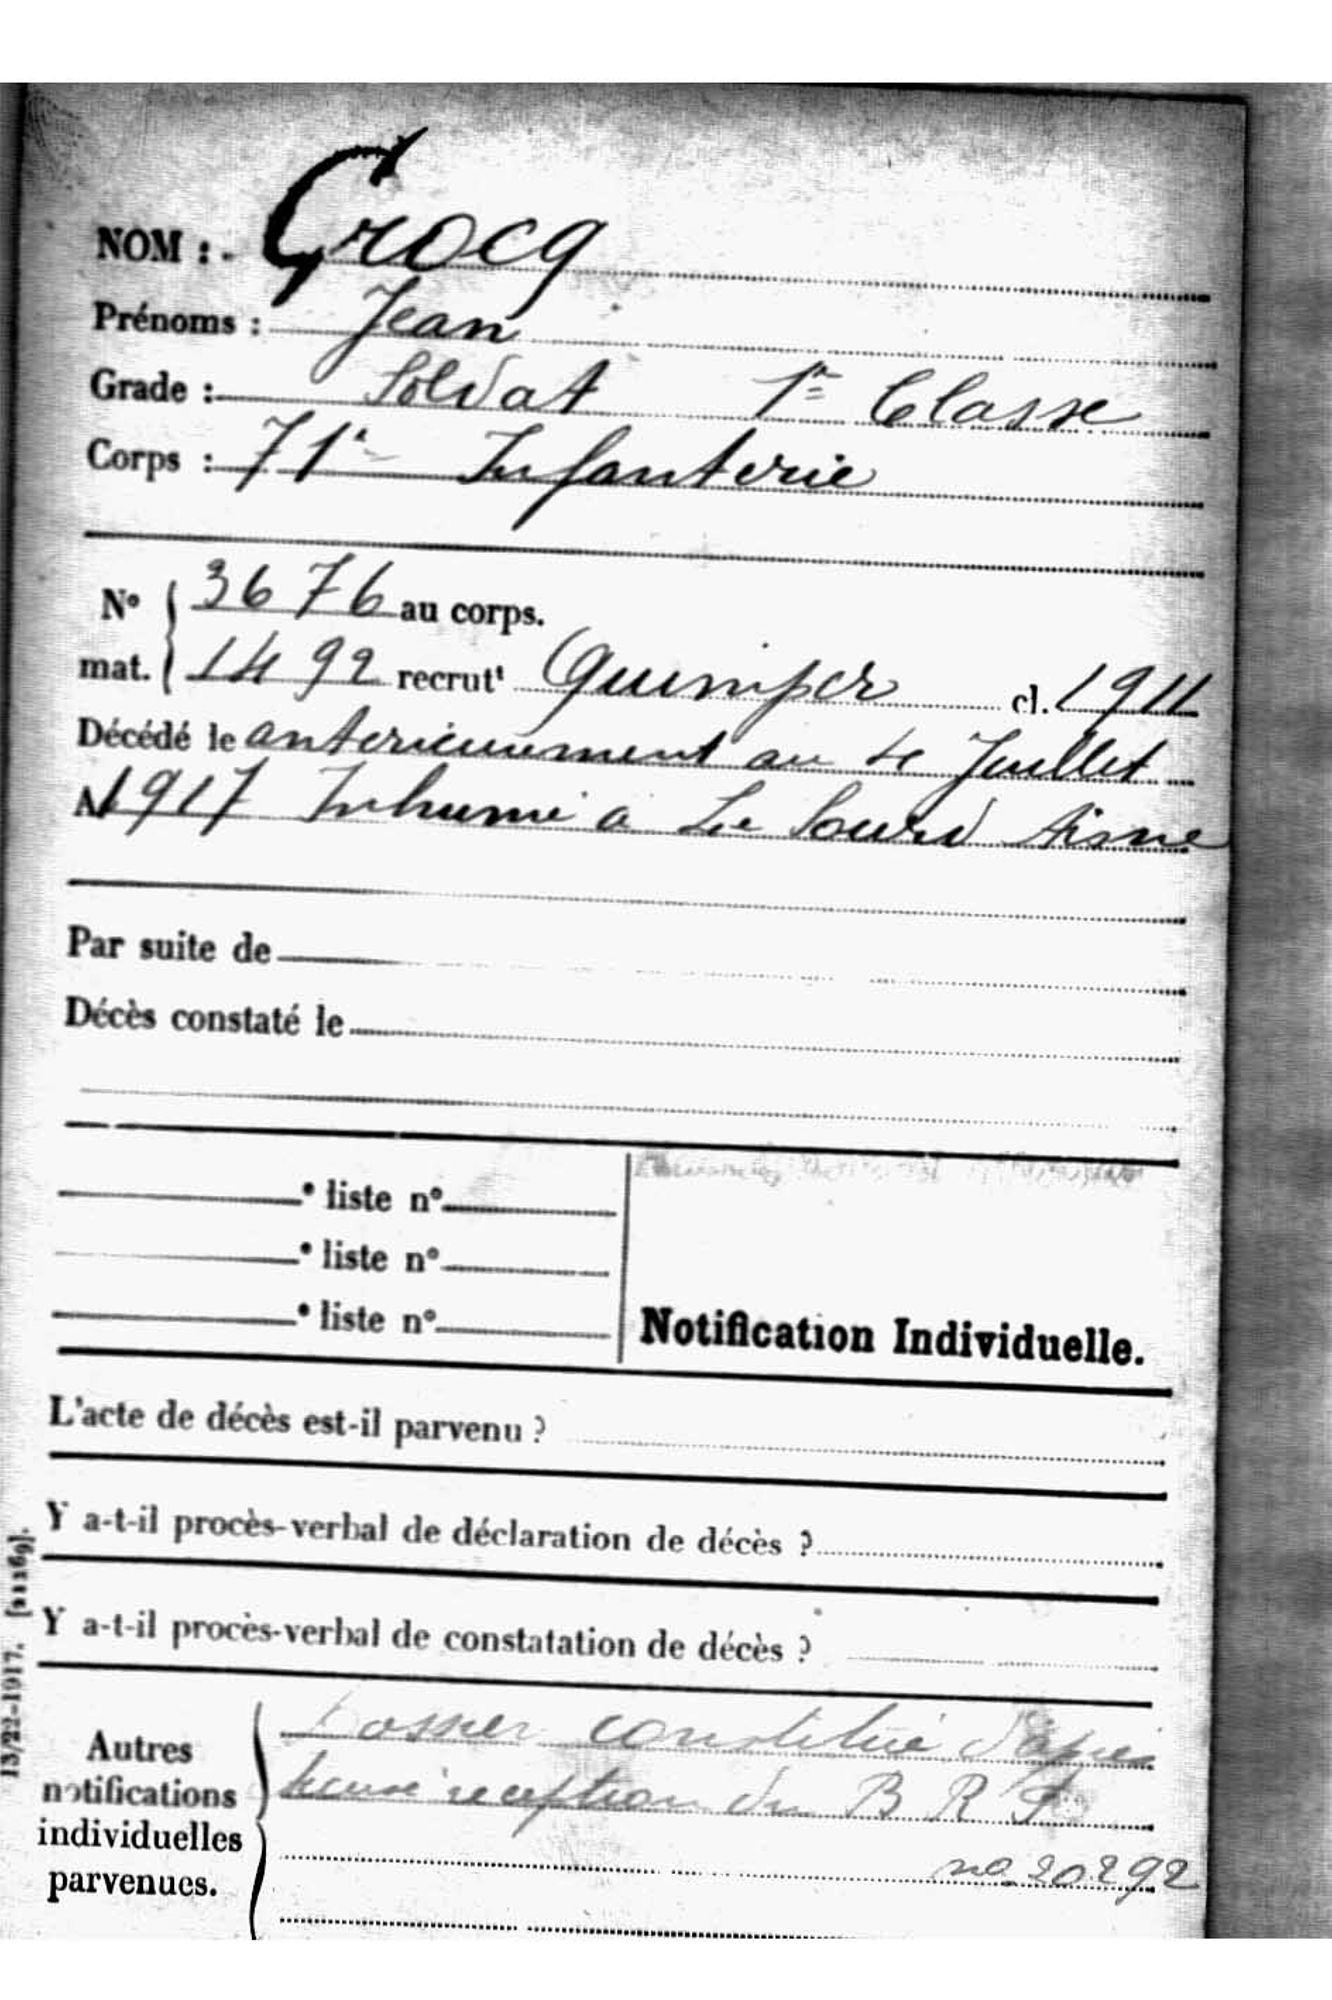 NOM : Crocq
Prénoms : Jean
Grade : Soldat 1re Classe
Corps : 71e Infanterie
No 3676 au corps.
mat. 1492 recrutt Quimper cl. 1911
Décédé le anterieurement au 4 Juillet
A 1917 Inhumé a Le Sourd Aisne
Par suite de
Décès constaté le
e liste no
e liste no
e liste no
Notification Individuelle.
L'acte de décès est-il parvenu ?
Y a-t-il procès-verbal de déclaration de décès ?
Y a-t-il procès-verbal de constatation de décès ?
Autres notifications individuelles parvenues.
Dossier constitué d'après
reception du B R
no 20292
13/22-1917. [21169].